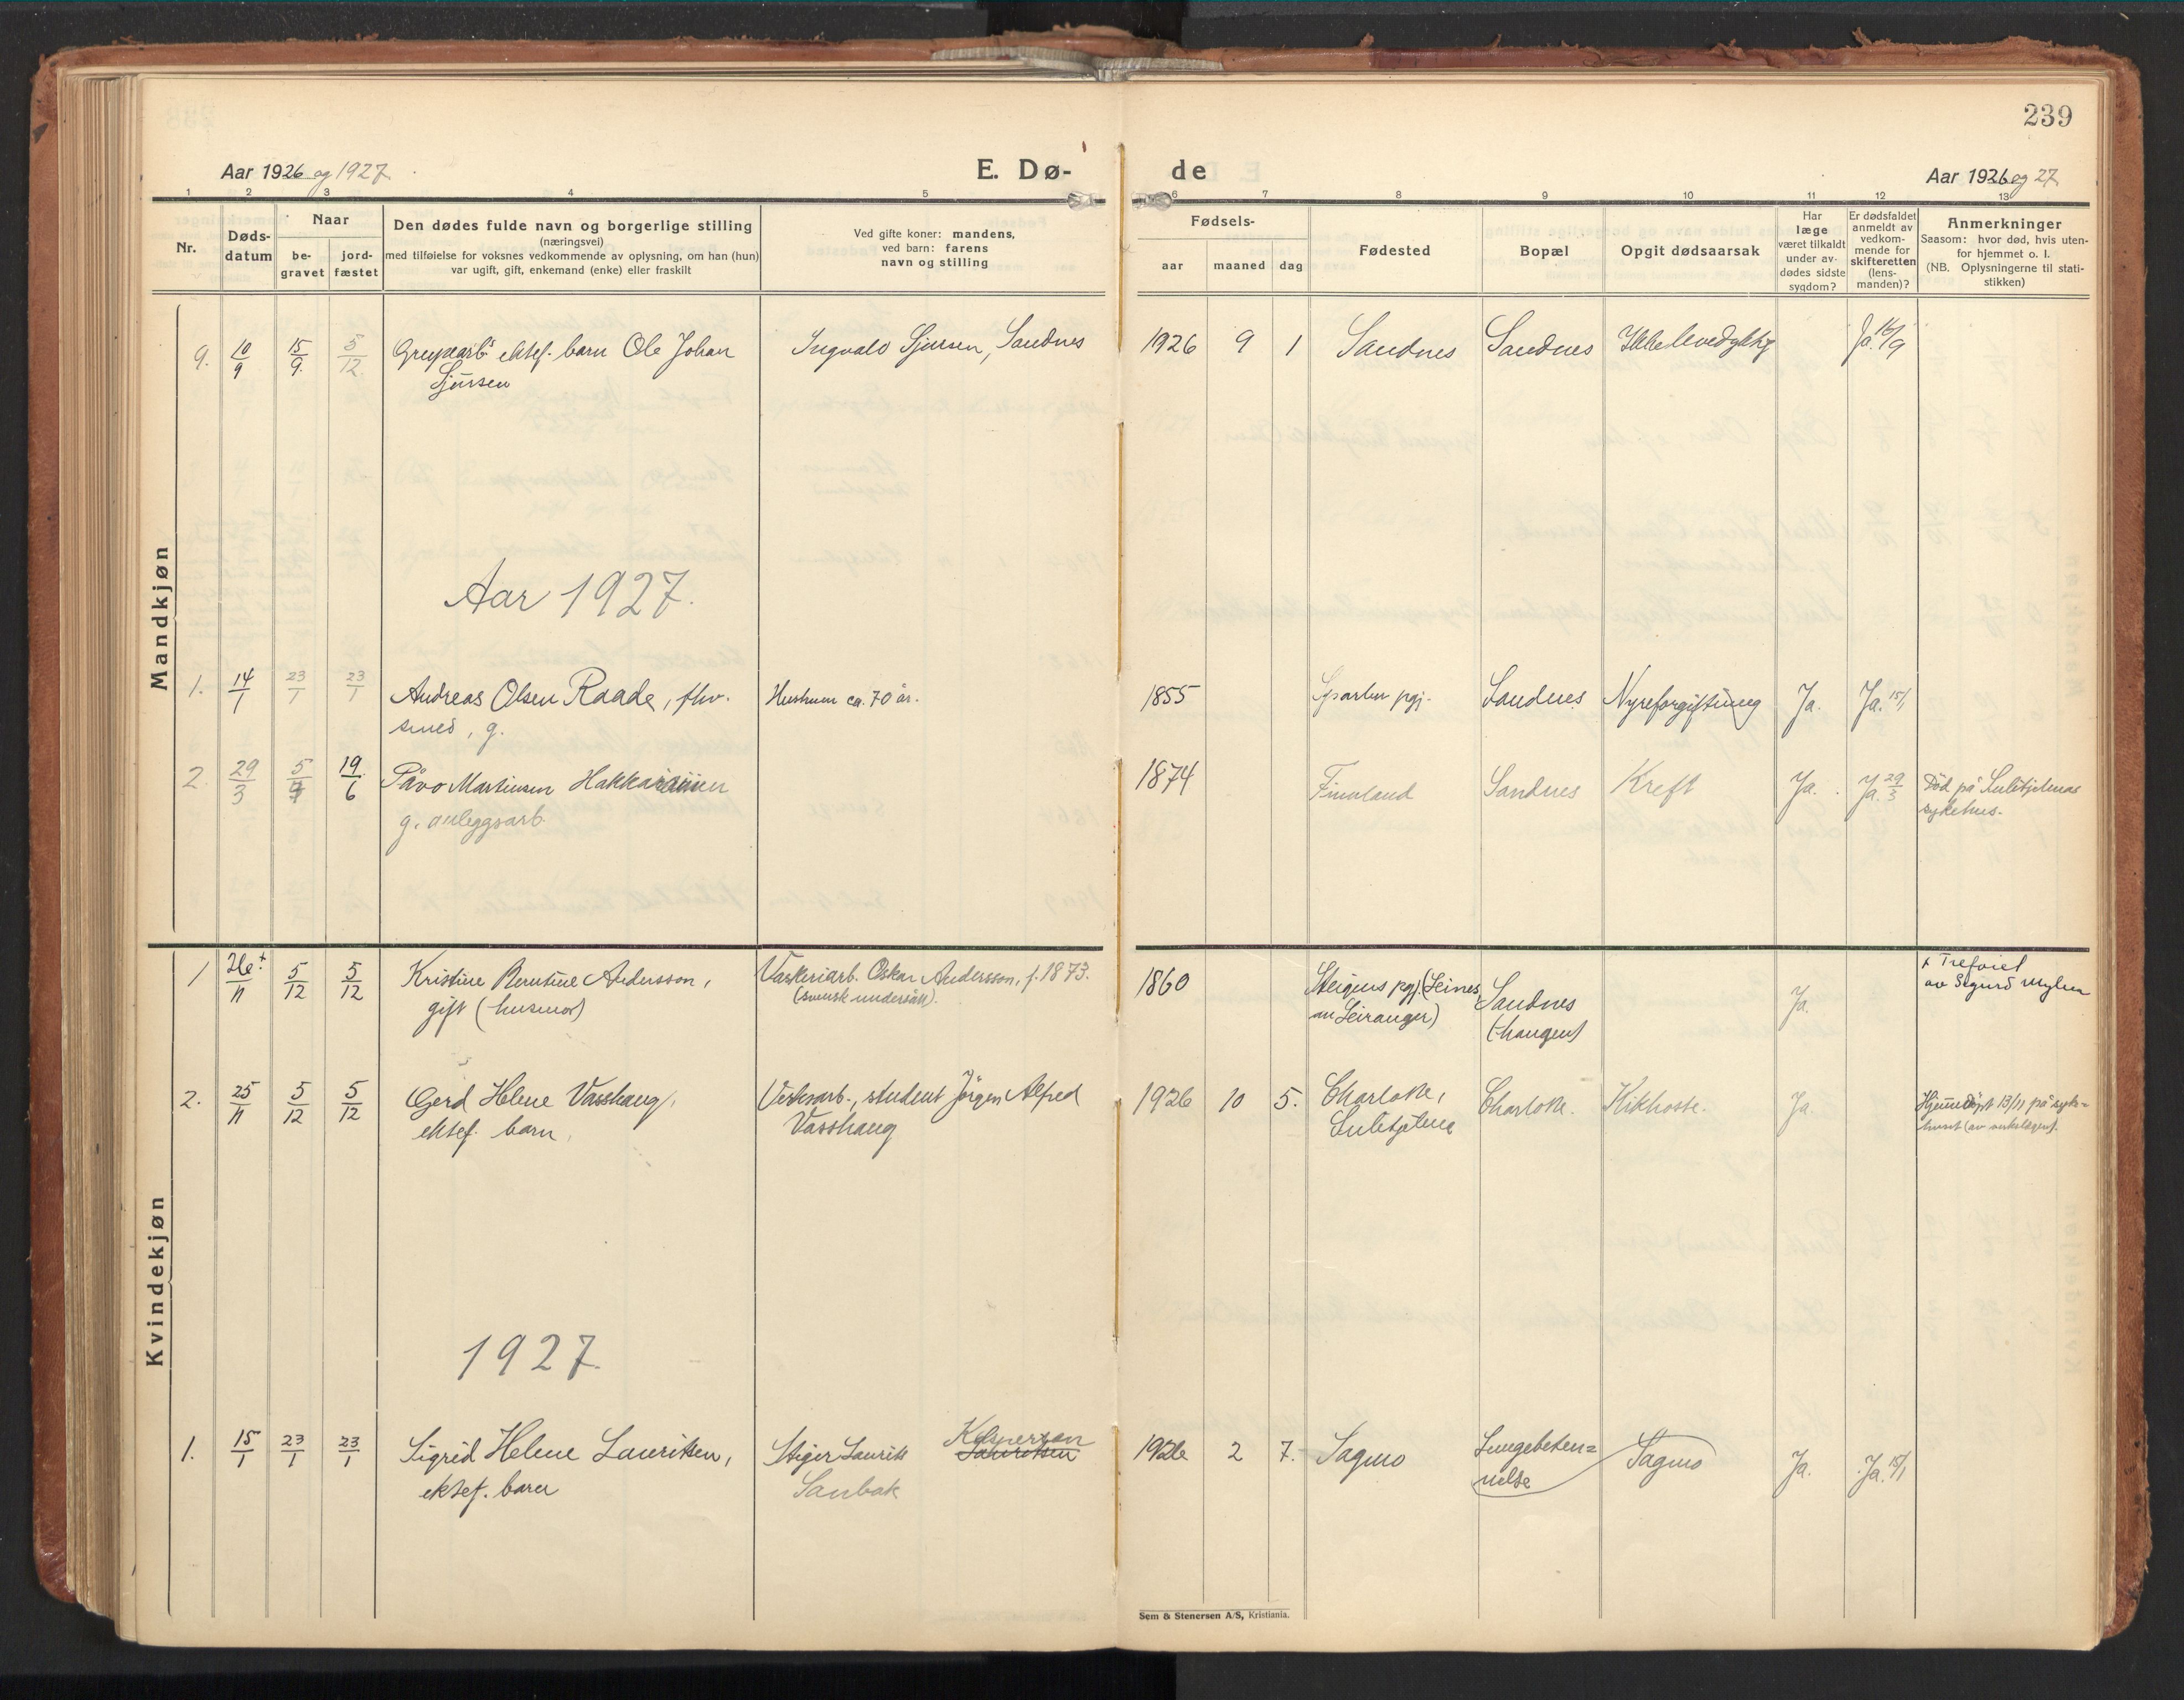 239
Aar 1926 og 1927.
E. Dø-
de
Aar 1926 og 27
1 2 3 4 5 6 7 8 9 10 11 12 13
Nr.
Døds-
datum
Naar
be-
gravet
jord-
fæstet
Den dødes fulde navn og borgerlige stilling
(næringsvei)
med tilføielse for voksnes vedkommende av oplysning, om han (hun)
var ugift, gift, enkemand (enke) eller fraskilt
Ved gifte koner: mandens,
ved barn: farens
navn og stilling
Fødsels-
aar maaned dag
Fødested
Bopæl
Opgit dødsaarsak
Har
læge
været tilkaldt
under av-
dødes sidste
sygdom?
Er dødsfaldet
anmeldt av
vedkom-
mende for
skifteretten
(lens-
manden)?
Anmerkninger
Saasom: hvor død, hvis uten-
for hjemmet o. l.
(NB. Oplysningerne til stati-
stikken)
Mandkjøn
9. 10/9 15/9. 5/12 ektef. barn Ole Johan Ingvald Sjursen, Sandnes 1926 9 1 Sandnes Sandnes Ikke levedyktig Ja. 16/9
Sjursen
Aar 1927.
1. 14/1 23/1 23/1 Andreas Olsen Raade, fhv. Hustruen ca. 70 år. 1855 pgj. Sandnes Nyreforgiftning Ja. Ja. 15/1
smed, g.
2 29/3 5/4 19/6 Påvo Martinsen 1874 Finnland Sandnes Kreft Ja. Ja. 29/3 Død på Sulitjelmas
g. anleggsarb. sykehus.
Kvindekjøn
1 26+/11 5/12 5/12 Kristine Berntine Andersson, Vaskeriarb. Oskar Andersson, f. 1873. 1860 Steigens pgj. (Leines Sandnes Ja. + Tilføiet
gift (husmor) (svensk undersått). Leiranger) (haugen) av Sigurd
2. 25/11 5/12 5/12 Gerd Helene Vasshaug, Verksarb., student Jörgen Alfred 1926 10 5. Charlotte, Charlotte. Kikhoste. Ja. Hjemmedöpt 13/11 på syke=
ektef. barn Vasshaug Sulitjelma huset (av verkslægen).
1927.
1. 15/1 23/1 23/1 Sigrid Helene Lauritsen, Stiger Laurits Lauritsen 1926 2 7. Sagmo Lungebeten= Sagmo Ja. Ja. 15/1
ektef. barn nelse
Sem & Stenersen A/S, Kristiania.